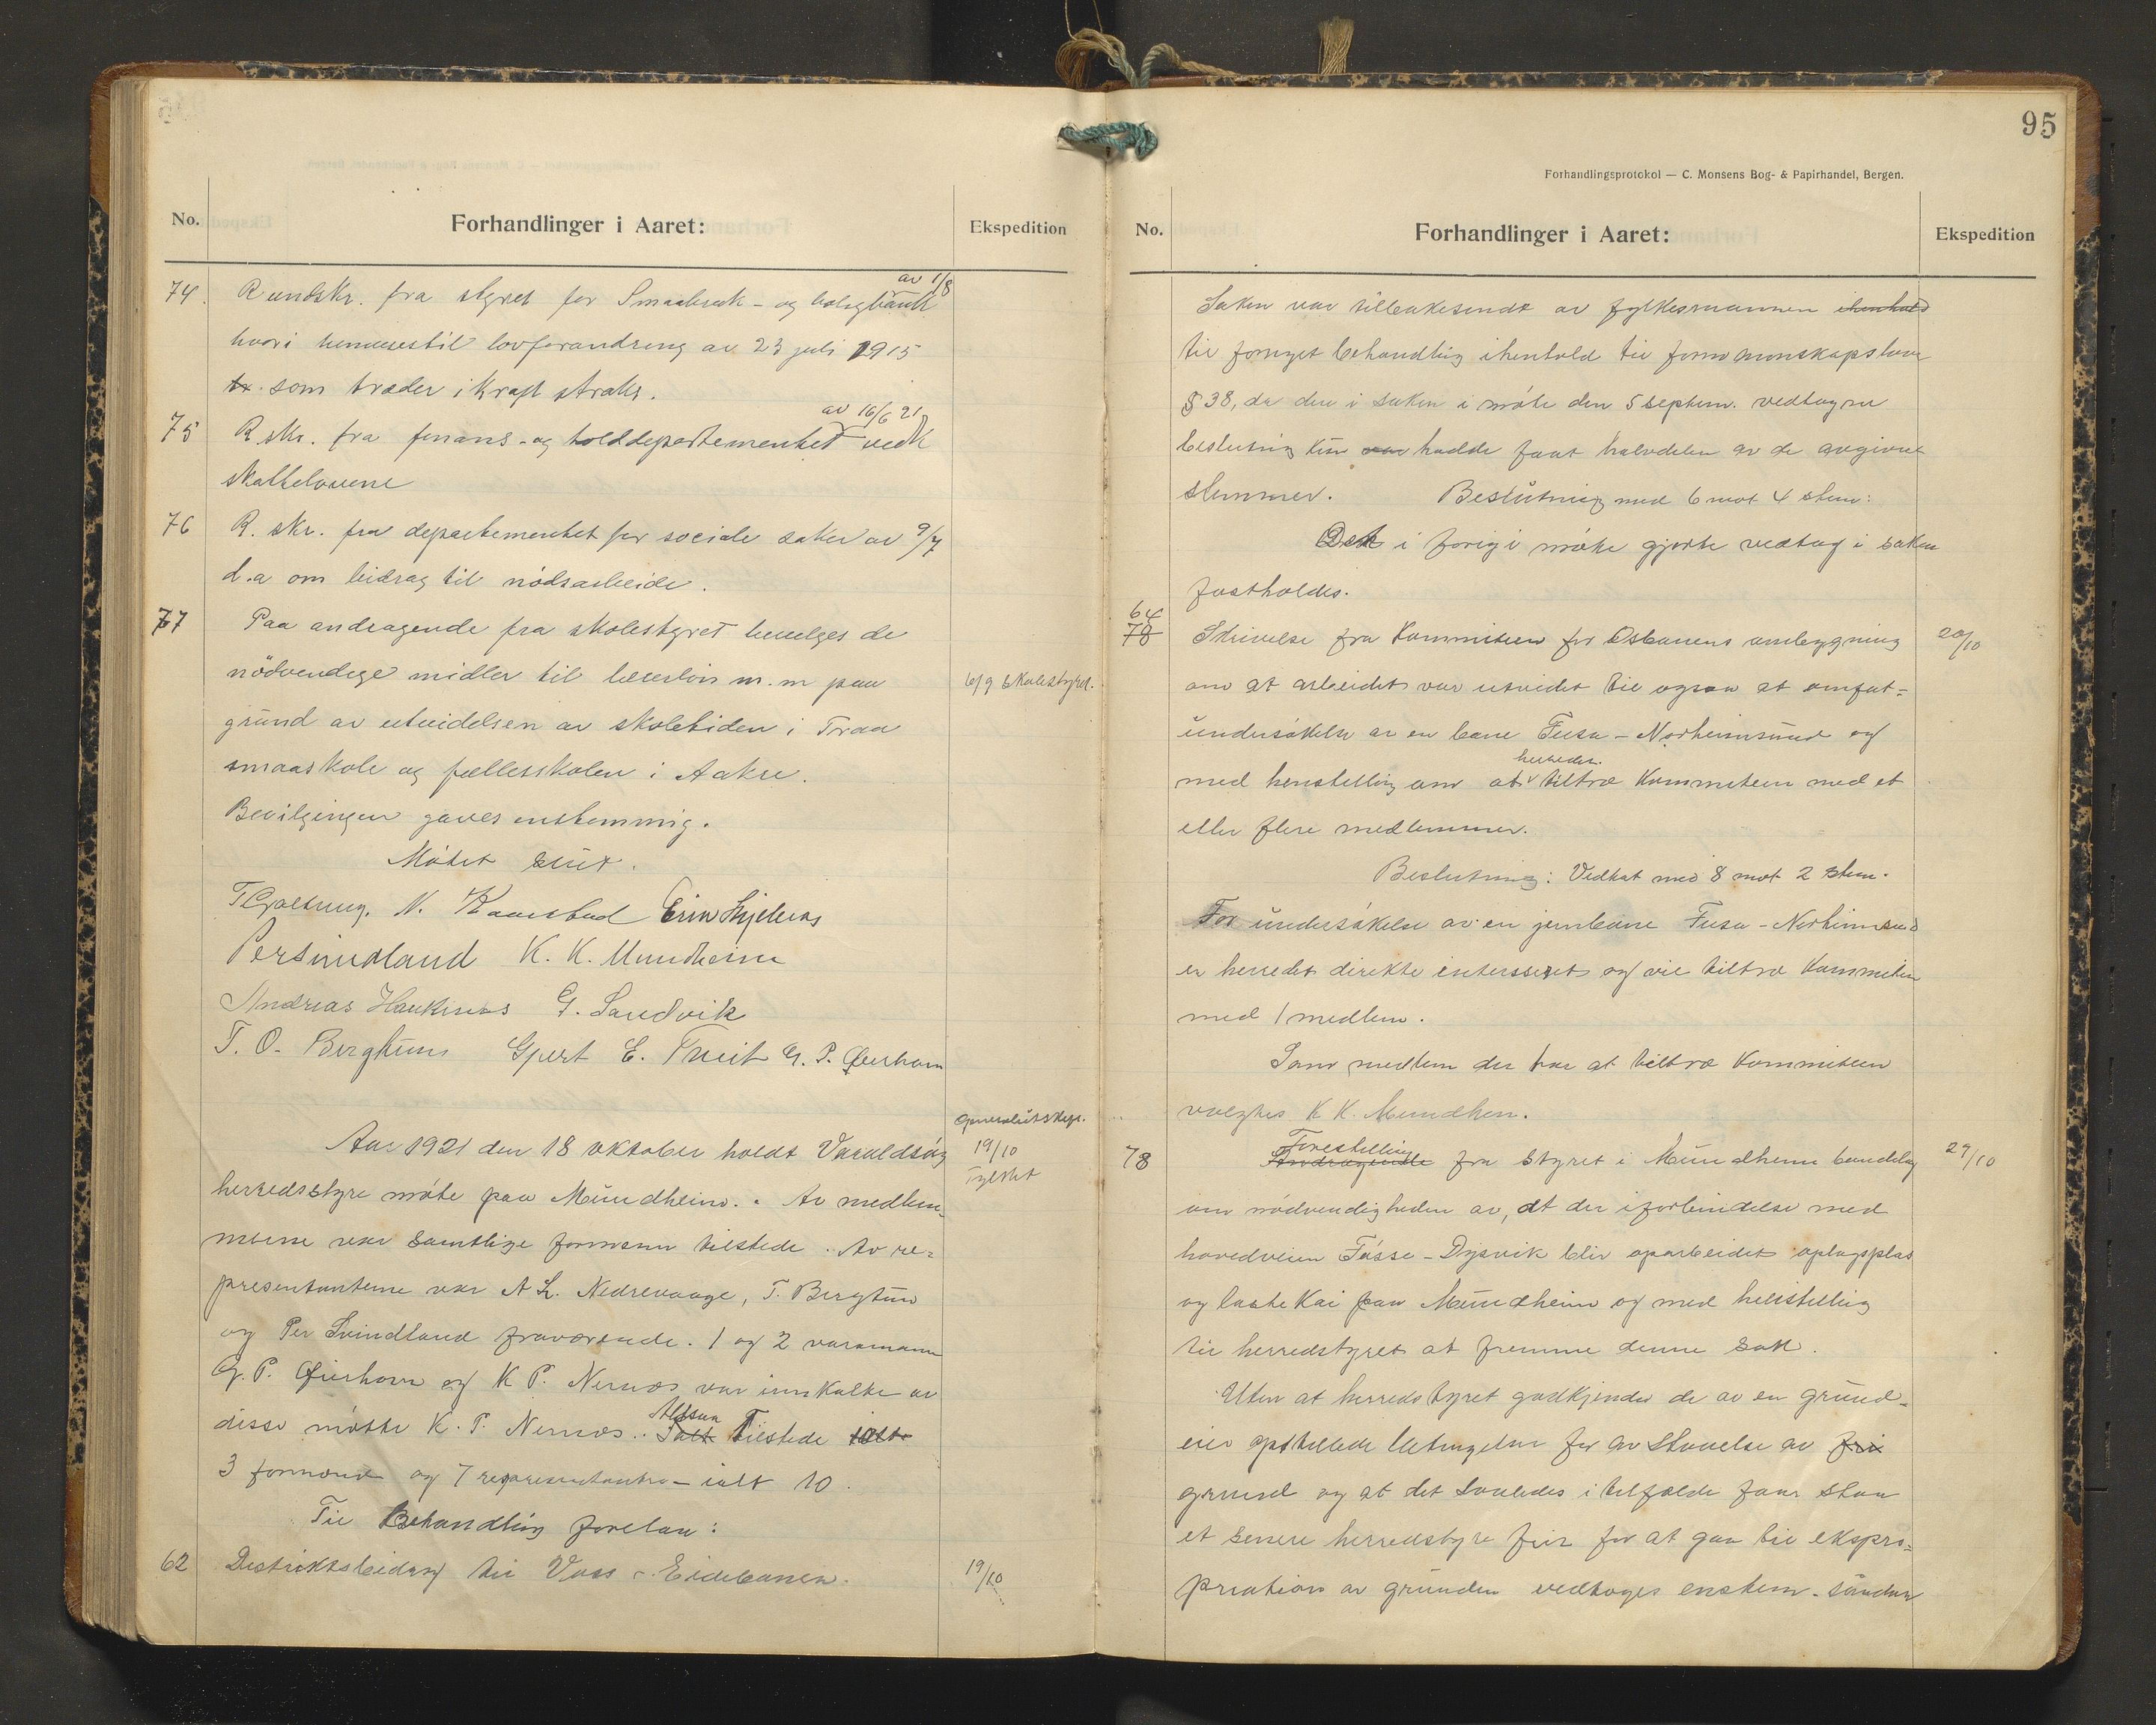 No.
Forhandlinger i Aaret:
Ekspedition
74. Rundskr. fra styret for Smaabruk- og boligbank av 1/8
hvori henvises til lovforandring av 23 juli 1915
som træder i kraft straks.
75 R.skr. fra finans- og tolddepartementet av 16/6 21 vedk
skattelovene
76 R. skr. fra departementet for sociale saker av 9/7
d.a om bidrag til nödsarbeide.
77 Paa andragende fra skolestyret bevilges de
nödvendige midler til lærerlön m.m paa
6/9 Skolestyret.
grund av utvidelsen av skoletiden i Traa
smaaskole og fællesskolen i Aakre.
Bevilgingen gaves enstemmig.
Mötet slut.
T Gjætung. N. Kaarstad
Per Svindland K. K. Mundheim
Andreas Haukenæs G. Sandvik
T. O. Bergtun Gjert E. Tveit G. P. Øierhavn
Aar 1921 den 18 oktober holdt Varaldsöy
19/10
herredsstyre möte paa Mundheim. Av medlem-
merne var samtlige formænn tilstede. Av re-
presentanterne var A L. Nedrevaage, T. Bergtun
og Per Svindland fraværende. 1 og 2 varamann
G. P. Øierhavn og K P. Nernæs var innkalte av
disse mötte K. P. Nernæs. Altsaa Ialt tilstede ialt
3 formænd og 7 representanter - ialt 10.
Til Behandling forelaa:
62 Distriktsbidrag til Voss - Eidebanen.
19/10
95
Forhandlingsprotokol — C. Monsens Bog- & Papirhandel, Bergen.
No.
Forhandlinger i Aaret:
Ekspedition
Saken var tilbakesendt av fylkesmannen ihenhold
til fornyet behandling ihenhold til formannskapslove
§ 38, da den i saken i möte den 5 septem. vedtagne
beslutning kun var hadde faat halvdelen av de avgivne
stemmer. Beslutning med 6 mot 4 stem:
Det i forrige möte gjorte vedtag i saken
fastholdes.
64
78 Skrivelse fra Kommiteen for Osbanens ombygning
20/10
om at arbeidet var utvidet til ogsaa at omfat-
undersökelse av en bane Fusa - Norheimsund og
med henstilling om at herredet tiltræ Kommiteen med et
eller flere medlemmer.
Beslutning: Vedtat med 8 mot 2 stem.
For undersökelse av en jernbane Fusa - Norheimsund
er herredet direkte interssert og vil tiltræ Kommiteen
med 1 medlem.
Som medlem der har at tiltræ Kommiteen
valgtes K K. Mundheim.
78 Forestilling Andragende fra styret i Mundheim bandelag
29/10
om nödvendigheden av, at der i forbindelse med
hovedveien Fosse - Dysvik blir oparbeidet oplagsplas
og laste Kai paa Mundheim og med henstilling
til herredstyret at fremme denne sak.
Uten at herredstyret godkjender de av en grund-
eier opstillede betingelser for avstaaelse av fri
grund og at det saaledes i tilfælde faar staa
et senere herredstyre frit for at gaa til ekspro-
priation av grunden vedtoges enstem. saadan